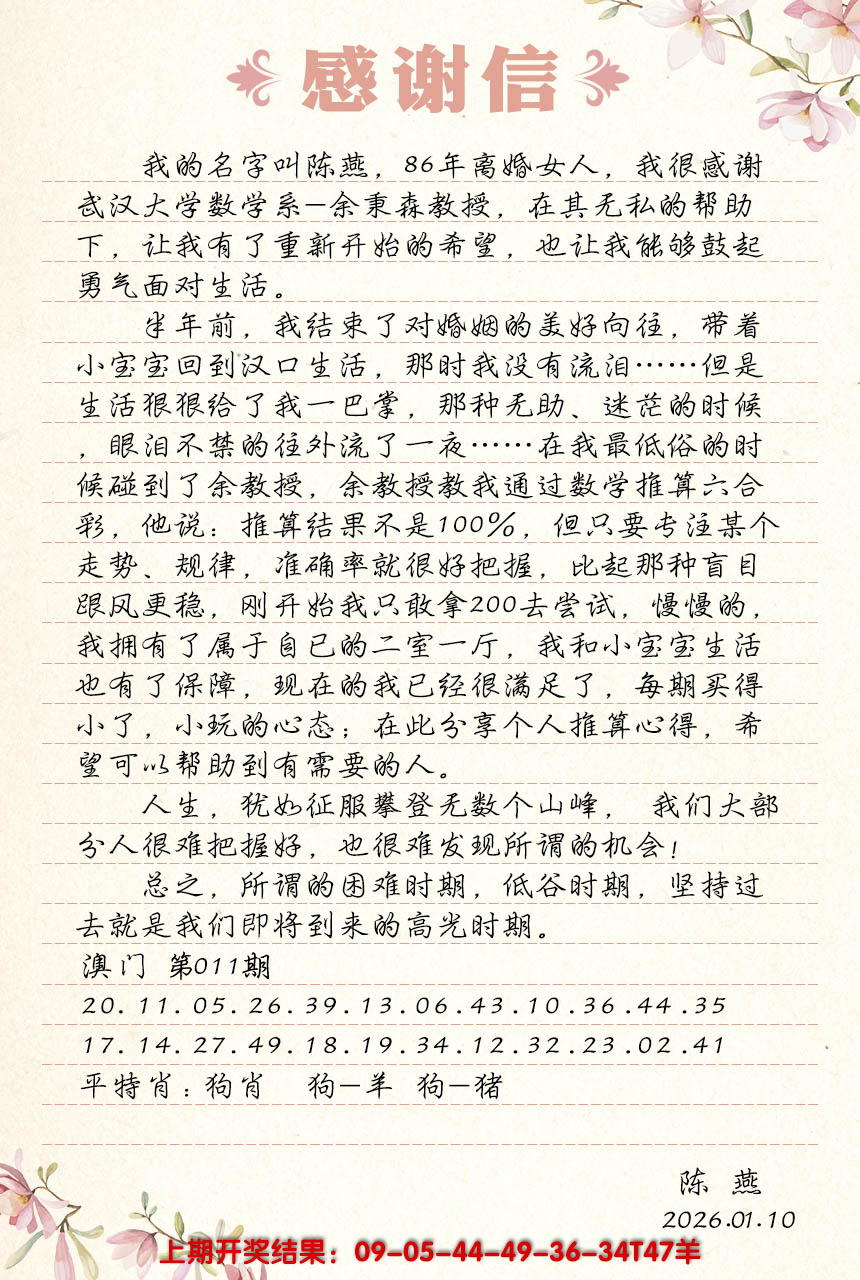 感谢信
我的名字叫陈燕，86年离婚女人，我很感谢
武汉大学数学系—余秉森教授，在其无私的帮助
下，让我有了重新开始的希望，也让我能够鼓起
勇气面对生活。
半年前，我结束了对婚姻的美好向往，带着
小宝宝回到汉口生活，那时我没有流泪……但是
生活狠狠给了我一巴掌，那种无助、迷茫的时候
，眼泪不禁的往外流了一夜……在我最低俗的时
候碰到了余教授，余教授教我通过数学推算六合
彩，他说：推算结果不是100%，但只要专注某个
走势、规律，准确率就很好把握，比起那种盲目
跟风更稳，刚开始我只敢拿200去尝试，慢慢的，
我拥有了属于自已的二室一厅，我和小宝宝生活
也有了保障，现在的我已经很满足了，每期买得
小了，小玩的心态；在此分享个人推算心得，希
望可以帮助到有需要的人。
人生，犹如征服攀登无数个山峰， 我们大部
分人很难把握好，也很难发现所谓的机会！
总之，所谓的困难时期，低谷时期，坚持过
去就是我们即将到来的高光时期。
澳门 第011期
20.11.05.26.39.13.06.43.10.36.44.35
17.14.27.49.18.19.34.12.32.23.02.41
平特肖：狗肖 狗—羊 狗—猪
陈 燕
2026.01.10
上期开奖结果：09-05-44-49-36-34T47羊